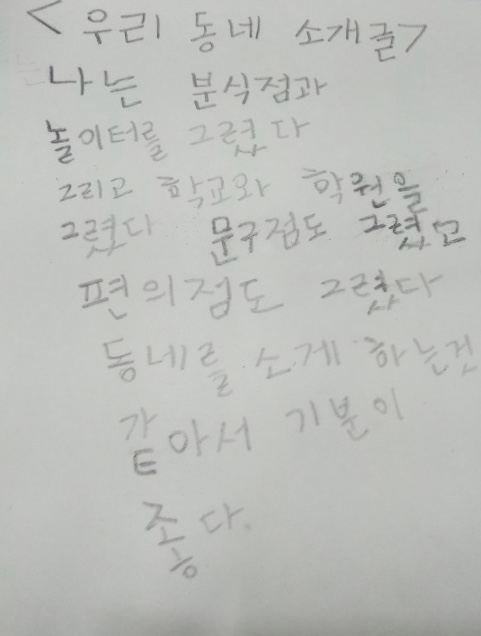 <우리 동네 소개글>
나는 분식점과
놀이터를 그렸다
그리고 학교와 학원을
그렸다 문구점도 그렸고
편의점도 그렸다
동네를 소게 하는것
같아서 기분이
좋다.